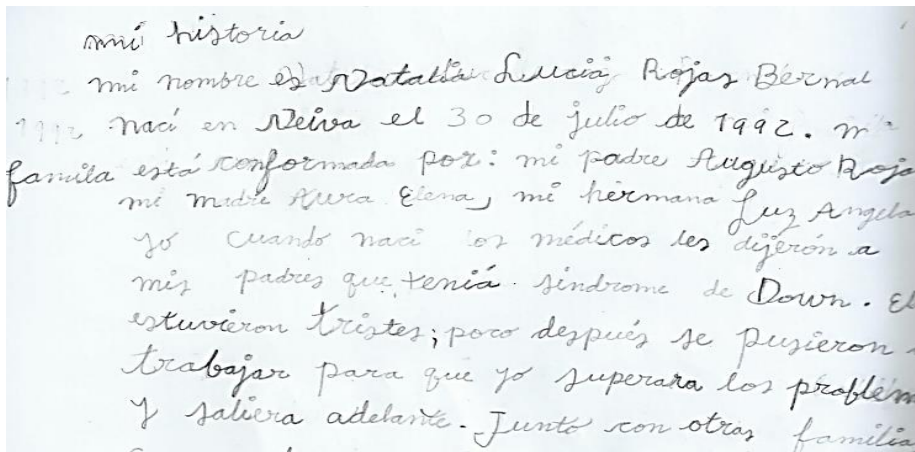 mi historia
mi nombre es Natalia Lucia Rojas Bernal
nací en Neiva el 30 de julio de 1992. m
famila está conformada por: mi padre Augusto Roja
mi madre Aura Elena, mi hermana Luz Angela
yo cuando naci los médicos les dijerón a
mis padres que teniá sindrome de Down. El
estuvieron tristes; poco después se pusieron
trabajar para que yo superara los problem
y saliera adelante. Junto con otras familia